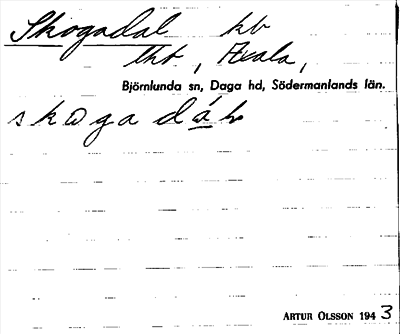 Skogadal hb
lht., Axala,
Björnlunda sn, Daga hd, Södermanlands län.
skoga dáh
ARTUR OLSSON 1943